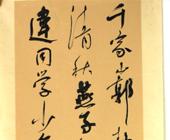 千家山郭
清秋燕子
違同学少